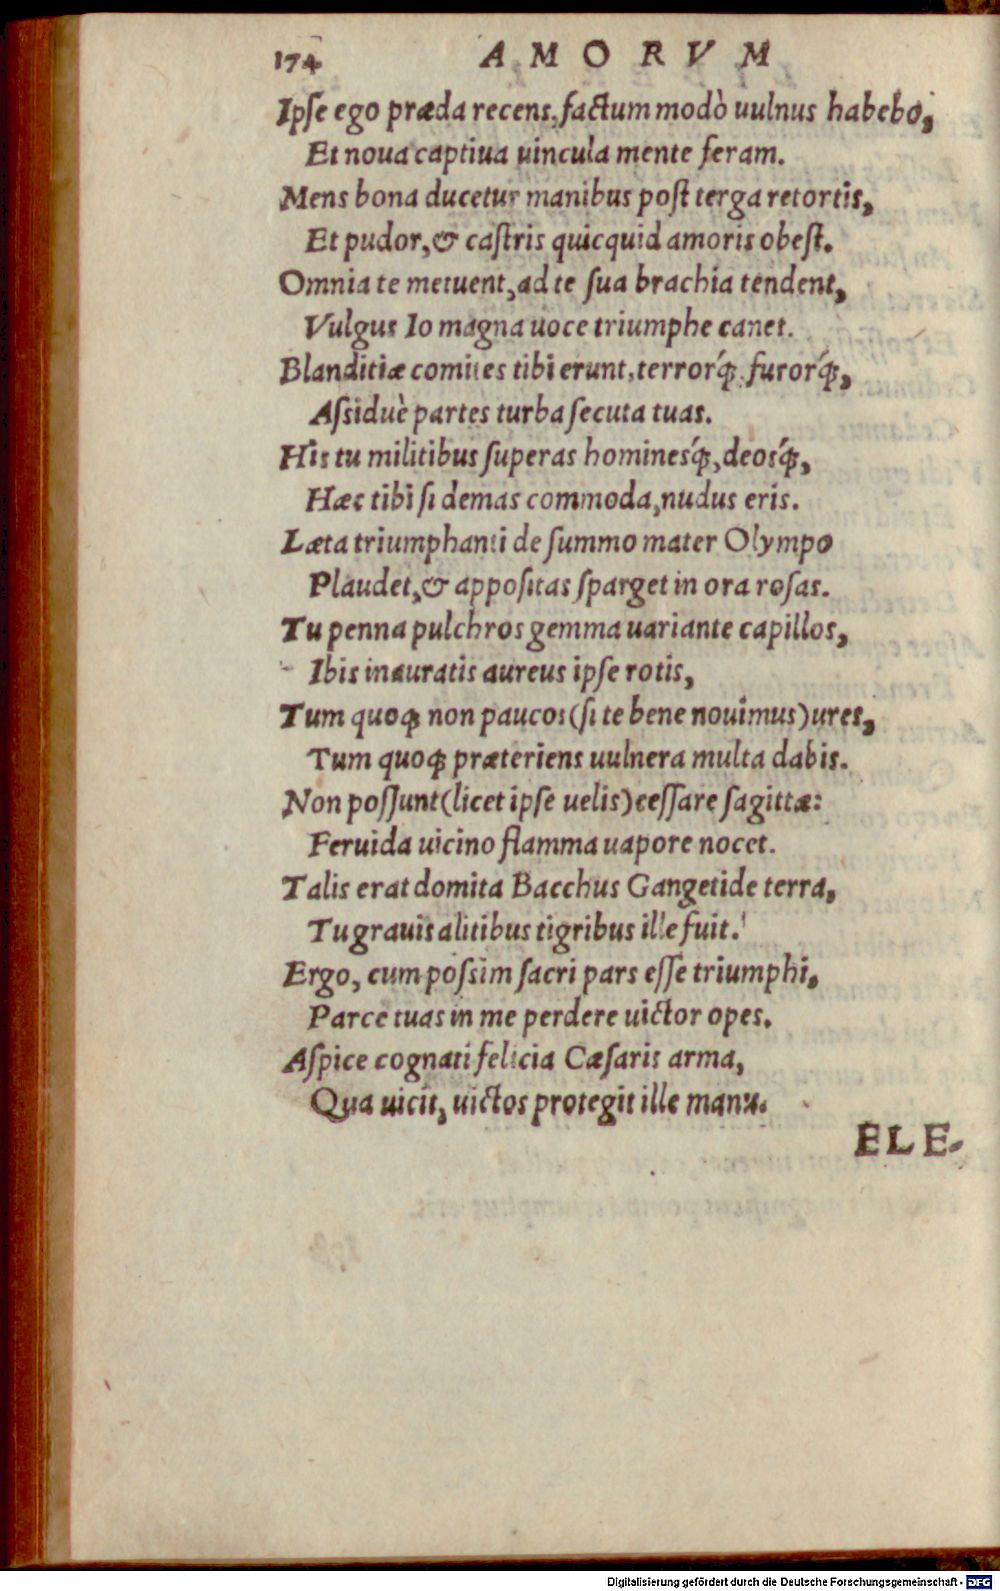 174 AMORVM
Ipſe ego præda recens, factum modò uulnus habebo,
Et noua captiua uincula mente feram.
Mens bona ducetur manibus poſt terga retortis,
Et pudor, & caſtris quicquid amoris obeſt.
Omnia te metuent, ad te ſua brachia tendent,
Vulgus Io magna uoce triumphe canet.
Blanditiæ comites tibi erunt, terrorq́;, furorq́;,
Aſsiduè partes turba ſecuta tuas.
His tu militibus ſuperas hominesq́;, deosq́;,
Hæc tibi ſi demas commoda, nudus eris.
Læta triumphanti de ſummo mater Olympo
Plaudet, & appoſitas ſparget in ora roſas.
Tu penna pulchros gemma uariante capillos,
Ibis inauratis aureus ipſe rotis,
Tum quoq; non paucos (ſi te bene nouimus) ures,
Tum quoq; præteriens uulnera multa dabis.
Non poſſunt (licet ipſe uelis) ceſſare ſagittæ:
Feruida uicino flamma uapore nocet.
Talis erat domita Bacchus Gangetide terra,
Tu grauis alitibus tigribus ille fuit.
Ergo, cum poſsim ſacri pars eſſe triumphi,
Parce tuas in me perdere uictor opes.
Aſpice cognati felicia Cæſaris arma,
Qua uicit, uictos protegit ille manu.
ELE-
Digitalisierung gefördert durch die Deutsche Forschungsgemeinschaft - DFG